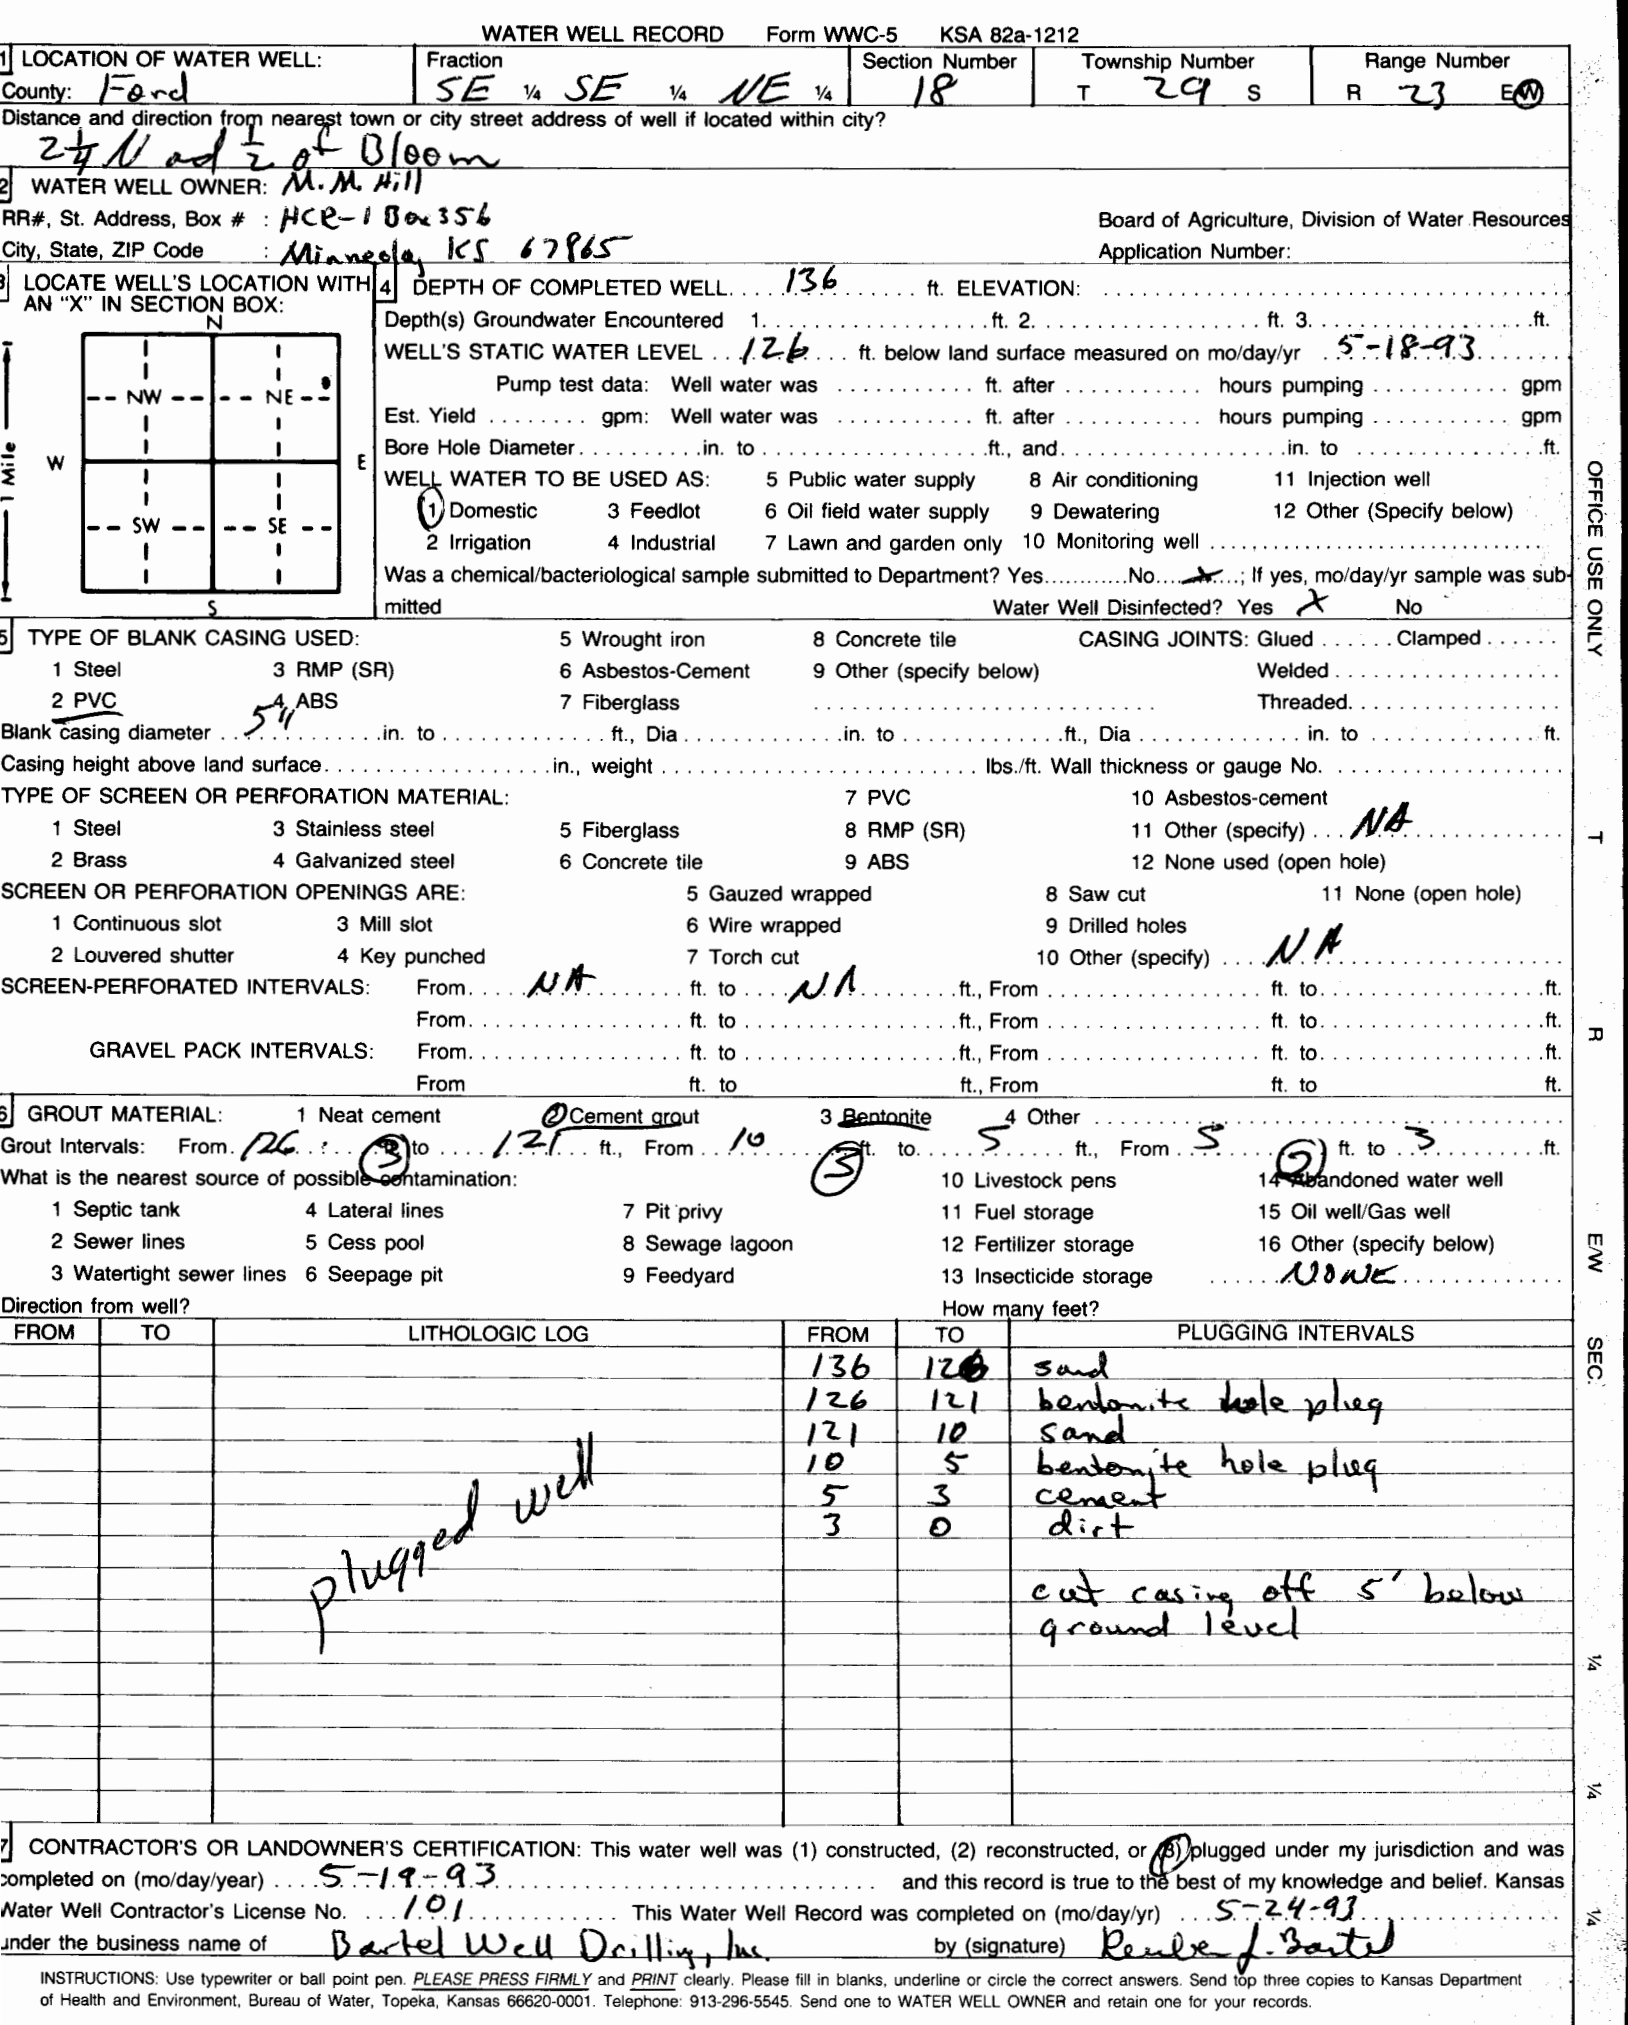 WATER WELL RECORD Form WWC-5 KSA 82a-1212
1 LOCATION OF WATER WELL: Fraction Section Number Township Number Range Number
County: Ford SE ¼ SE ¼ NE ¼ 18 T 29 S R 23 E(W)
Distance and direction from nearest town or city street address of well if located within city?
2¼ N ad ½ of Bloom
2 WATER WELL OWNER: M. M. Hill
RR#, St. Address, Box # : HCR-1 Box 356 Board of Agriculture, Division of Water Resources
City, State, ZIP Code : Minneola, KS 67865 Application Number:
3 LOCATE WELL'S LOCATION WITH AN "X" IN SECTION BOX:
N
NW NE
W E
SW SE
S
1 Mile
4 DEPTH OF COMPLETED WELL. . . . 136 . . . . ft. ELEVATION: . . . .
Depth(s) Groundwater Encountered 1. . . . . ft. 2. . . . . ft. 3. . . . . ft.
WELL'S STATIC WATER LEVEL . . 126 . . . ft. below land surface measured on mo/day/yr . 5-18-93 . . . .
Pump test data: Well water was . . . . ft. after . . . . hours pumping . . . . gpm
Est. Yield . . . . gpm: Well water was . . . . ft. after . . . . hours pumping . . . . gpm
Bore Hole Diameter . . . . in. to . . . . ft., and . . . . in. to . . . . ft.
WELL WATER TO BE USED AS: 5 Public water supply 8 Air conditioning 11 Injection well
(1) Domestic 3 Feedlot 6 Oil field water supply 9 Dewatering 12 Other (Specify below)
2 Irrigation 4 Industrial 7 Lawn and garden only 10 Monitoring well . . . .
Was a chemical/bacteriological sample submitted to Department? Yes . . . . No . . . X . . . ; If yes, mo/day/yr sample was sub-
mitted Water Well Disinfected? Yes X No
5 TYPE OF BLANK CASING USED: 5 Wrought iron 8 Concrete tile CASING JOINTS: Glued . . . . Clamped . . . .
1 Steel 3 RMP (SR) 6 Asbestos-Cement 9 Other (specify below) Welded . . . .
2 PVC 4 ABS 7 Fiberglass . . . . Threaded. . . .
Blank casing diameter . . 5" . . . . in. to . . . . ft., Dia . . . . in. to . . . . ft., Dia . . . . in. to . . . . ft.
Casing height above land surface. . . . in., weight . . . . lbs./ft. Wall thickness or gauge No. . . . .
TYPE OF SCREEN OR PERFORATION MATERIAL: 7 PVC 10 Asbestos-cement
1 Steel 3 Stainless steel 5 Fiberglass 8 RMP (SR) 11 Other (specify) . . . NA . . . .
2 Brass 4 Galvanized steel 6 Concrete tile 9 ABS 12 None used (open hole)
SCREEN OR PERFORATION OPENINGS ARE: 5 Gauzed wrapped 8 Saw cut 11 None (open hole)
1 Continuous slot 3 Mill slot 6 Wire wrapped 9 Drilled holes
2 Louvered shutter 4 Key punched 7 Torch cut 10 Other (specify) . . . . NA . . . .
SCREEN-PERFORATED INTERVALS: From. . . . NA . . . . ft. to . . . . NA . . . . ft., From . . . . ft. to. . . . ft.
From. . . . ft. to . . . . ft., From . . . . ft. to. . . . ft.
GRAVEL PACK INTERVALS: From. . . . ft. to . . . . ft., From . . . . ft. to. . . . ft.
From ft. to ft., From ft. to ft.
6 GROUT MATERIAL: 1 Neat cement (2) Cement grout 3 Bentonite 4 Other . . . .
Grout Intervals: From. 126 . . . (3) to . . . . 121 . . ft., From . . 10 (3) ft. to. . . . 5 . . . . ft., From . . 5 . . . . (2) ft. to . . 3 . . . . ft.
What is the nearest source of possible contamination: 10 Livestock pens 14 Abandoned water well
1 Septic tank 4 Lateral lines 7 Pit privy 11 Fuel storage 15 Oil well/Gas well
2 Sewer lines 5 Cess pool 8 Sewage lagoon 12 Fertilizer storage 16 Other (specify below)
3 Watertight sewer lines 6 Seepage pit 9 Feedyard 13 Insecticide storage . . . . NONE . . . .
Direction from well? How many feet?
FROM TO LITHOLOGIC LOG FROM TO PLUGGING INTERVALS
136 126 sand
126 121 bentonite hole plug
121 10 sand
10 5 bentonite hole plug
5 3 cement
3 0 dirt
plugged well
cut casing off 5' below
ground level
7 CONTRACTOR'S OR LANDOWNER'S CERTIFICATION: This water well was (1) constructed, (2) reconstructed, or (3) plugged under my jurisdiction and was
completed on (mo/day/year) . . . . 5-19-93 . . . . and this record is true to the best of my knowledge and belief. Kansas
Water Well Contractor's License No. . . . 101 . . . . This Water Well Record was completed on (mo/day/yr) . . . 5-24-93 . . . .
under the business name of Bartel Well Drilling, Inc. by (signature) Reuben J. Bartel
INSTRUCTIONS: Use typewriter or ball point pen. PLEASE PRESS FIRMLY and PRINT clearly. Please fill in blanks, underline or circle the correct answers. Send top three copies to Kansas Department
of Health and Environment, Bureau of Water, Topeka, Kansas 66620-0001. Telephone: 913-296-5545. Send one to WATER WELL OWNER and retain one for your records.
OFFICE USE ONLY
T
R
E/W
SEC.
¼
¼
¼